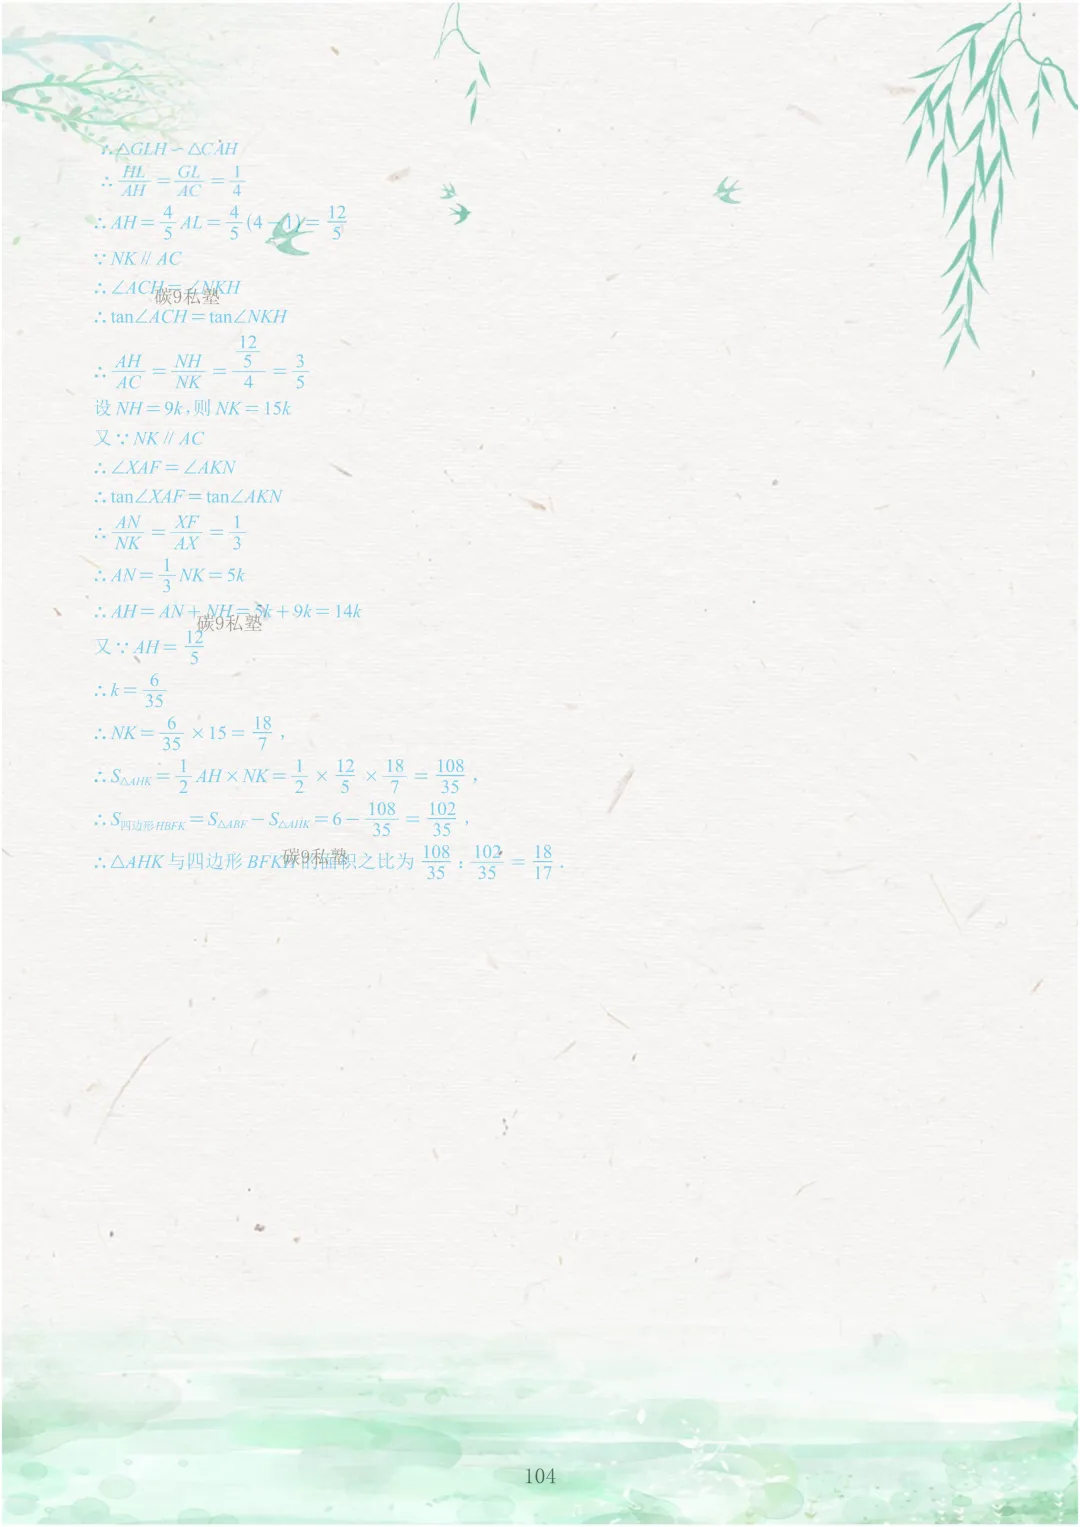 ∴△GLH∽△CAH
∴HL/AH=GL/AC=1/4
∴AH=4/5AL=4/5(4-1)=12/5
∵NK∥AC
∴∠ACH=∠NKH
碳9私塾
∴tan∠ACH=tan∠NKH
∴AH/AC=NH/NK=(12/5)/4=3/5
设NH=9k,则NK=15k
又∵NK∥AC
∴∠XAF=∠AKN
∴tan∠XAF=tan∠AKN
∴AN/NK=XF/AX=1/3
∴AN=1/3NK=5k
∴AH=AN+NH=5k+9k=14k
碳9私塾
又∵AH=12/5
∴k=6/35
∴NK=6/35×15=18/7,
∴S△AHK=1/2AH×NK=1/2×12/5×18/7=108/35,
∴S四边形HBFK=S△ABF-S△AHK=6-108/35=102/35,
∴△AHK与四边形BFKH的面积之比为108/35:102/35=18/17.
碳9私塾
104